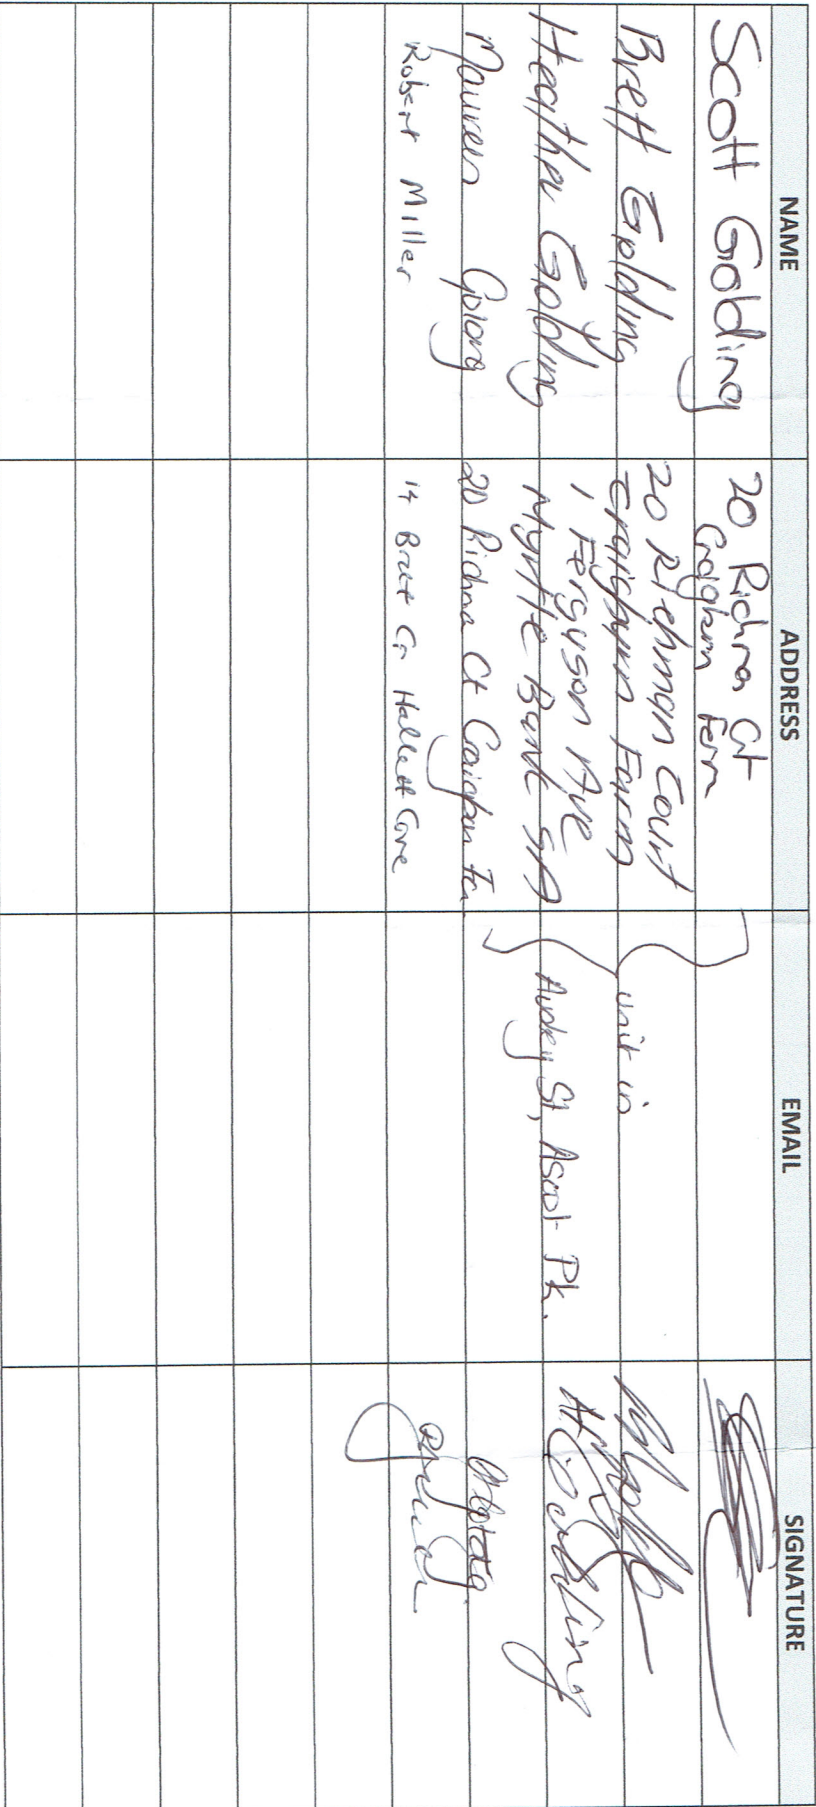 NAME ADDRESS EMAIL SIGNATURE
Scott Golding
20 Richman Ct
Craigburn Farm
Brett Golding
20 Richman Court
Craigburn Farm
unit in
Heather Golding
1 Ferguson Ave
Myrtle Bank SA
Audrey St, Ascot Pk.
H Golding
Maureen Golding
20 Richman Ct Craigburn Fa
Robert Miller
14 Brett Cr Hallett Cove